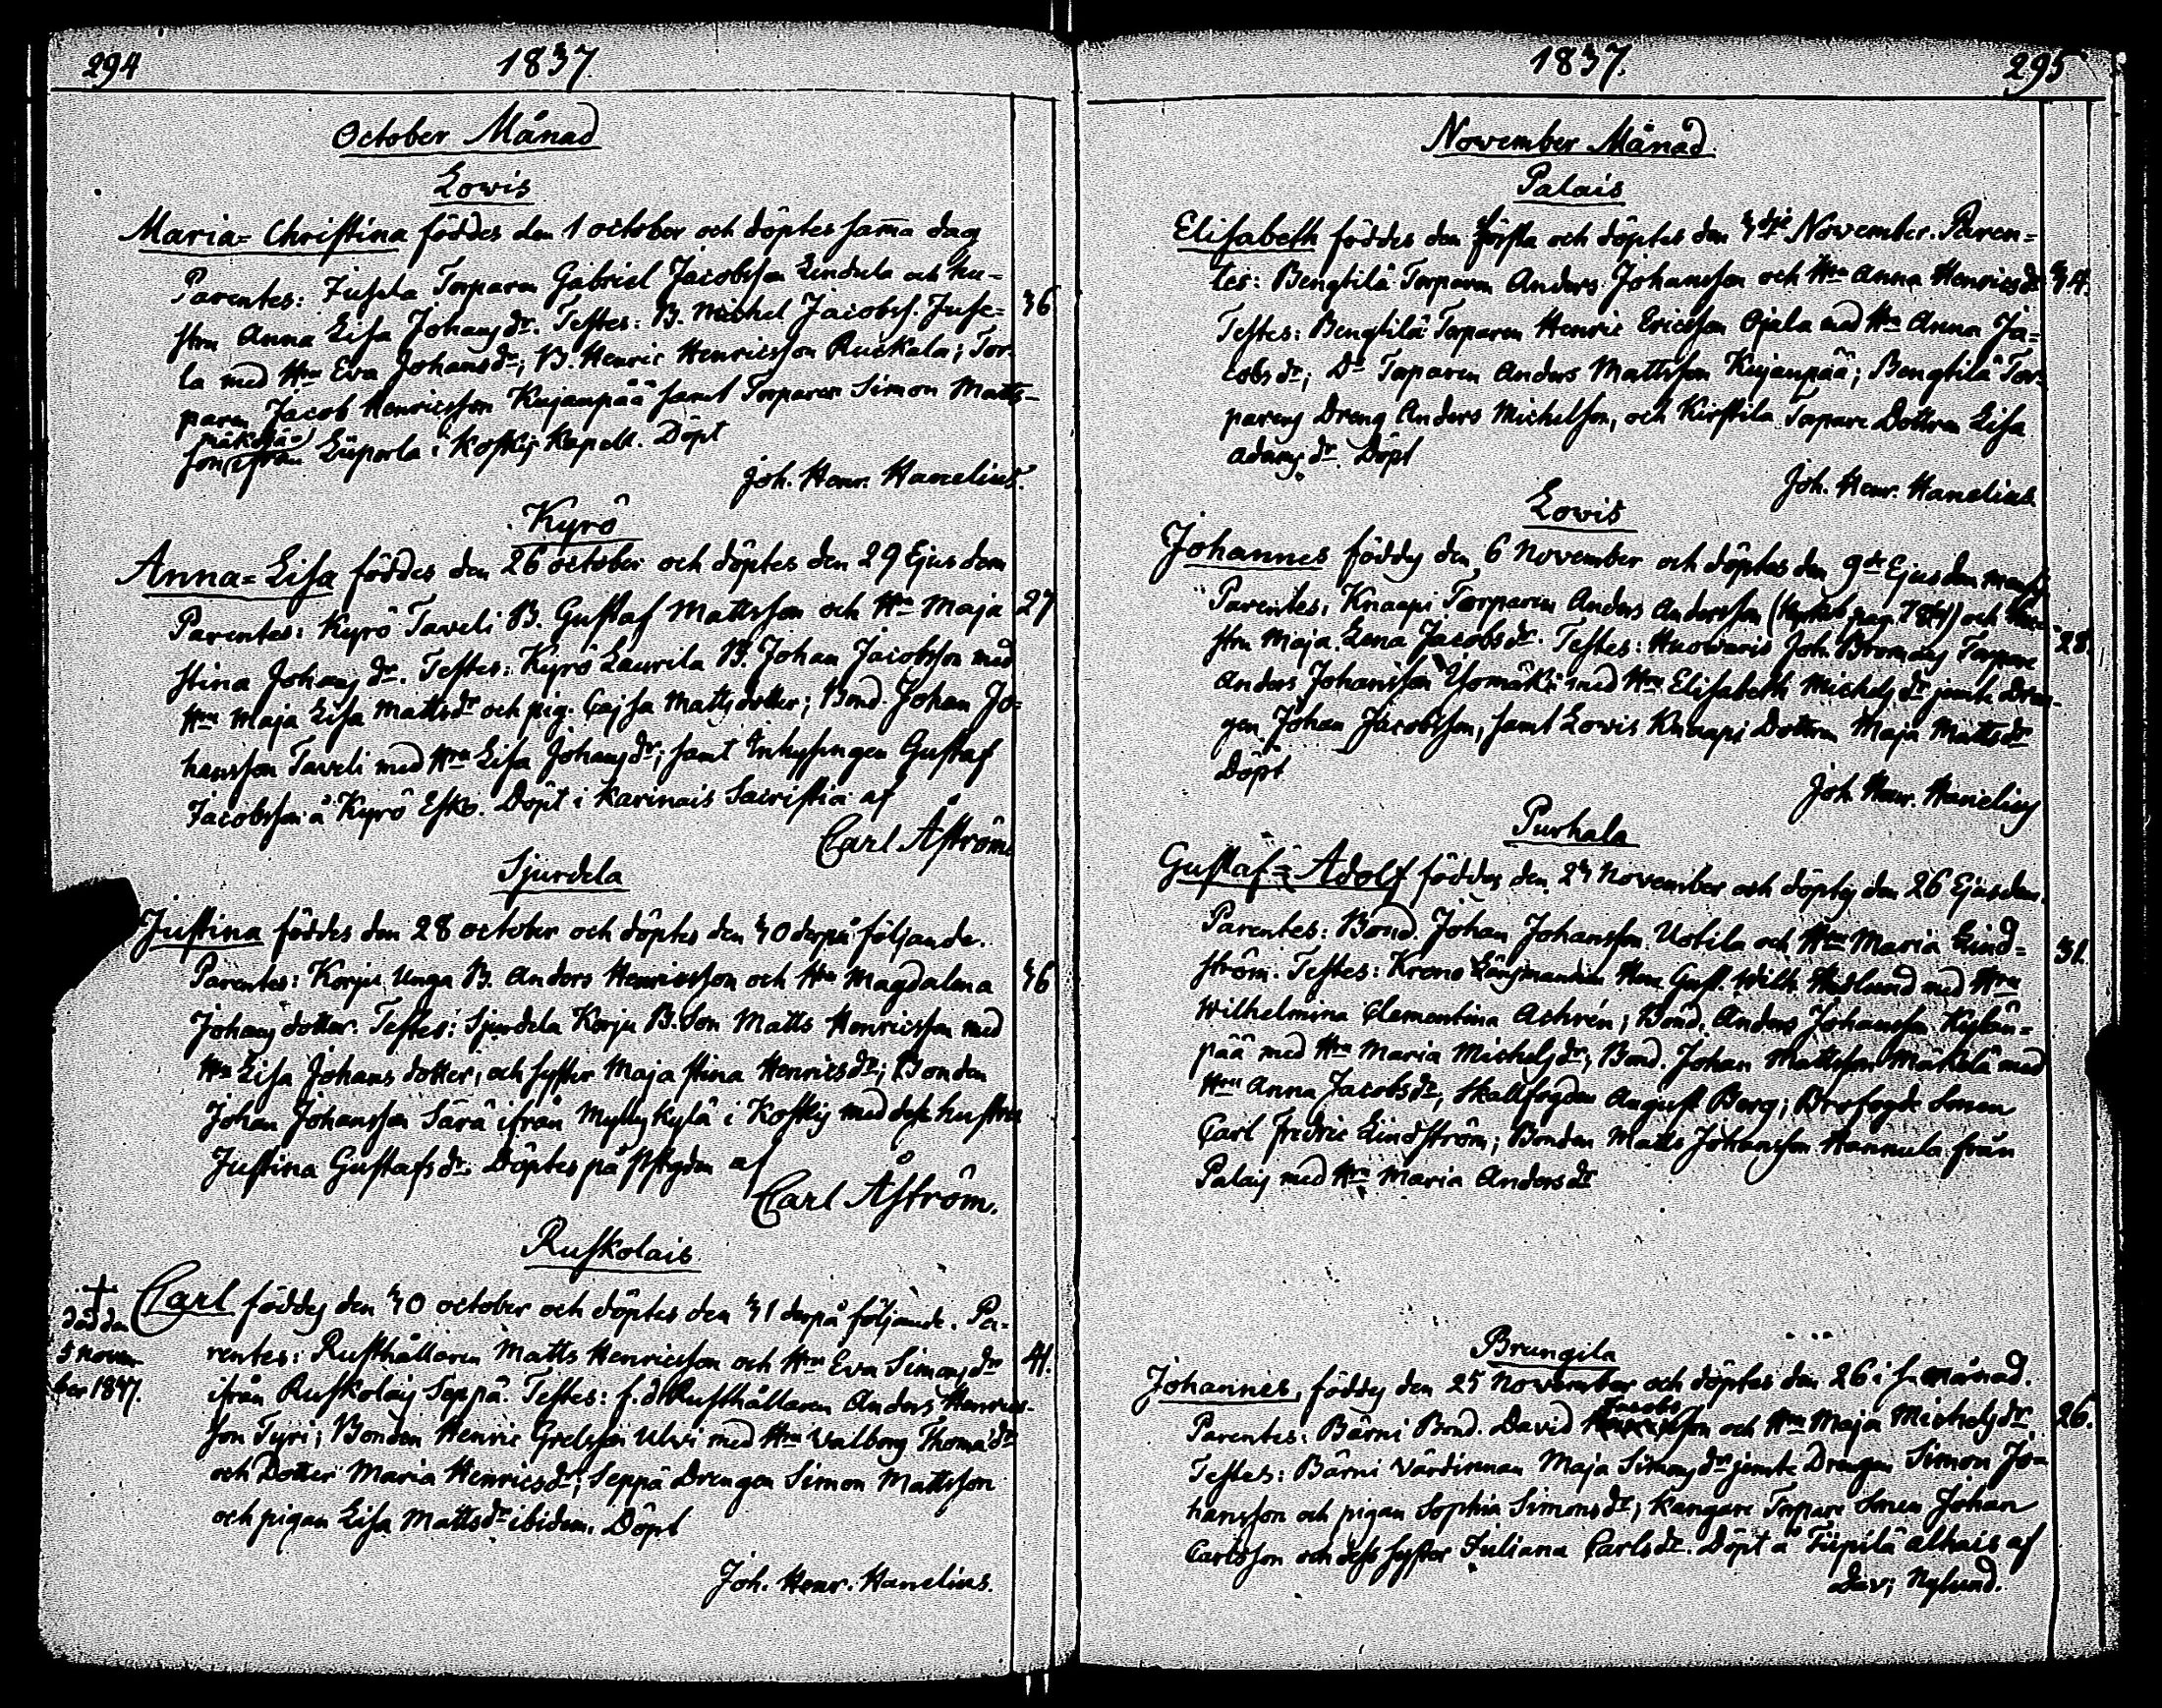 294
1837.
October Månad
Lowis
Maria=Christina föddes den 1 october och döptes samma dag
Parentes: Jusela Torparen Gabriel Jacobsson Lindula och Hu=
strn Anna Lisa Johansdr. Testes: B. Michel Jacobss. Juse= 36
la med Hrn Eva Johansdr; B. Henric Henricsson Ruskala; Tor=
paren Jacob Henricsson Kujanpää samt Torparen Simon Matts=
son ifrån Liiporla i Koskis Kapell. Döpt
Joh. Henr. Hanelius.
Kyrö
Anna=Lisa föddes den 26 october och döptes den 29 Ejusdem
Parentes: Kyrö Taveli B. Gustaf Mattsson och Hrn Maja 27
Stina Johansdr. Testes: Kyrö Laurila B. Johan Jacobsson med
Hrn Maja Lisa Mattsdr och pig. Cajsa Mattsdotter; Bond. Johan Jo=
hansson Taveli med Hrn Lisa Johansdr; samt Inhysingen Gustaf
Jacobsson å Kyrö Esko. Döpt i Karinais Sacristia af
Carl Åström.
Sjurdela
Justina föddes den 28 october och döptes den 30 derpå följande.
Parentes: Korju Unga B. Anders Henricsson och Hrn Magdalena 36
Johansdotter. Testes: Sjurdela Korju B. Son Matts Henricsson med
Hrn Lisa Johansdotter, och syster Maja Stina Henricsdr; Bonden
Johan Johansson Särä ifrån Myllykylä i Koskis med dess hustru
Justina Gustafsdr. Döptes på af
Carl Åström.
Ruskolais
† Carl föddes den 30 october och döptes den 31 derpå följande. Pa=
död den
5 Novem-
ber 1847.
rentes: Rusthållaren Matts Henricsson och Hrn Eva Simonsdr 41.
ifrån Ruskolais Seppä. Testes: f.d. Rusthållaren Anders Henrics=
son Tyri; Bonden Henric Grelsson Ulvi med Hrn Walborg Thomædr
och Dotter Maria Henricsdr; Seppä Drengen Simon Mattsson
och pigan Lisa Mattsdr ibidem. Döpt
Joh. Henr. Hanelius.
1837.
295
November Månad.
Palais
Elisabeth föddes den första och döptes den 3dje November. Paren=
tes: Bengtilä Torparen Anders Johansson och Hrn Anna Henricsdr 34.
Testes: Bengtilä Torparen Henric Ericsson Ojala med Hrn Anna Ja=
cobsdr; Do Torparen Anders Mattsson Kujanpää; Bengtilä Tor=
parens Dreng Anders Michelsson, och Kirstila Torpare Dottren Lisa
Adamsdr. Döpt
Joh. Henr. Hanelius.
Lowis
Johannes föddes den 6 November och döptes den 9de Ejusdem mensis
Parentes: Knaapi Torparen Anders Andersson och Hu=
strn Maja Lena Jacobsdr. Testes: Huovaris Joh. Bromans Torpare 28.
Anders Johansson Yömäki med Hrn Elisabeth Michelsdr jemte Dren=
gen Johan Jacobsson, samt Lowis Knaapi Dottren Maja Mattsdr
Döpt
Joh. Henr. Hanelius
Purhala
Gustaf=Adolf föddes den 23 November och döptes den 26 Ejusdem.
Parentes: Bond. Johan Johansson Uotila och Hrn Maria Lind= 31.
ström. Testes: Krono Länsmannen Herr Gust. Wilh. Hedlund med Hrn
Wilhelmina Clementina Achrén; Bond. Anders Johansson Kylän=
pää med Hrn Maria Michelsdr; Bond. Johan Mattsson Mäkelä med
Hrn Anna Jacobsdr; Skallfogden August Berg; Brofogde Sonen
Carl Fredric Lindström; Bonden Matts Johansson Hannula från
Palais med Hrn Maria Andersdr
Brungila
Johannes, föddes den 25 November och döptes den 26 i s. månad.
Parentes: Bärni Bond. David Jacobsson och Hrn Maja Michelsdr 26.
Testes: Bärni Värdinnan Maja Simonsdr jemte Drengen Simon Jo=
hansson och pigan Sophia Simonsdr; Kangare Torpare Sonen Johan
Carlsson och dess syster Juliana Carlsdr. Döpt å Tiipilä alhais af
Dav; Nylund.